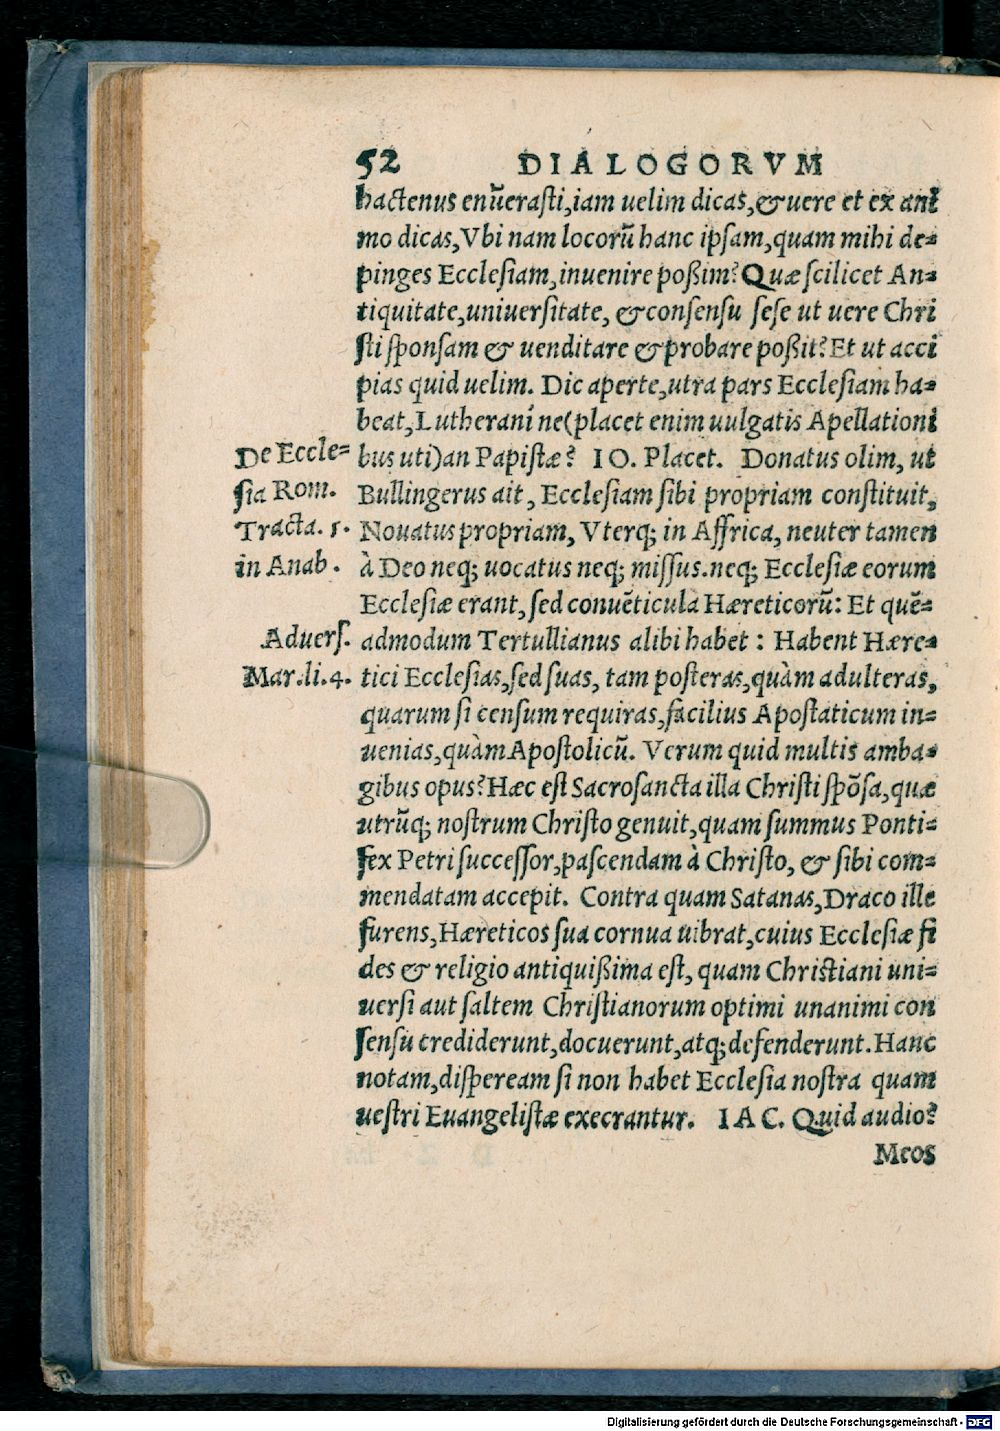 52 DIALOGORVM
hactenus enũerasti, iam uelim dicas, & uere et ex anĩ
mo dicas, Vbi nam locorũ hanc ipsam, quam mihi de=
pinges Ecclesiam, inuenire poßim? Quæ scilicet An=
tiquitate, uniuersitate, & consensu sese ut uere Chri
sti sponsam & uenditare & probare poßit? Et ut acci
pias quid uelim. Dic aperte, utra pars Ecclesiam ha=
beat, Lutheranı́ ne (placet enim uulgatis Apellationi
De Eccle= bus uti) an Papistæ? IO. Placet. Donatus olim, ut
sia Rom. Bullingerus ait, Ecclesiam sibi propriam constituit,
Tracta. 5. Nouatus propriam, Vterq; in Affrica, neuter tamen
in Anab. à Deo neq; uocatus neq; missus. neq; Ecclesiæ eorum
Ecclesiæ erant, sed conuẽticula Hæreticorũ: Et quẽ=
Aduers. admodum Tertullianus alibi habet: Habent Hære=
Mar. li. 4. tici Ecclesias, sed suas, tam posteras, quàm adulteras,
quarum si censum requiras, facilius Apostaticum in=
uenias, quàm Apostolicũ. Verum quid multis amba=
gibus opus? Hæc est Sacrosancta illa Christi spõsa, quæ
utrũq; nostrum Christo genuit, quam summus Ponti=
fex Petri successor, pascendam à Christo, & sibi com=
mendatam accepit. Contra quam Satanas, Draco ille
furens, Hæreticos sua cornua uibrat, cuius Ecclesiæ fi
des & religio antiquißima est, quam Christiani uni=
uersi aut saltem Christianorum optimi unanimi con
sensu crediderunt, docuerunt, atq; defenderunt. Hanc
notam, dispeream si non habet Ecclesia nostra quam
uestri Euangelistæ execrantur. IAC. Quid audio?
Meos
Digitalisierung gefördert durch die Deutsche Forschungsgemeinschaft - DFG